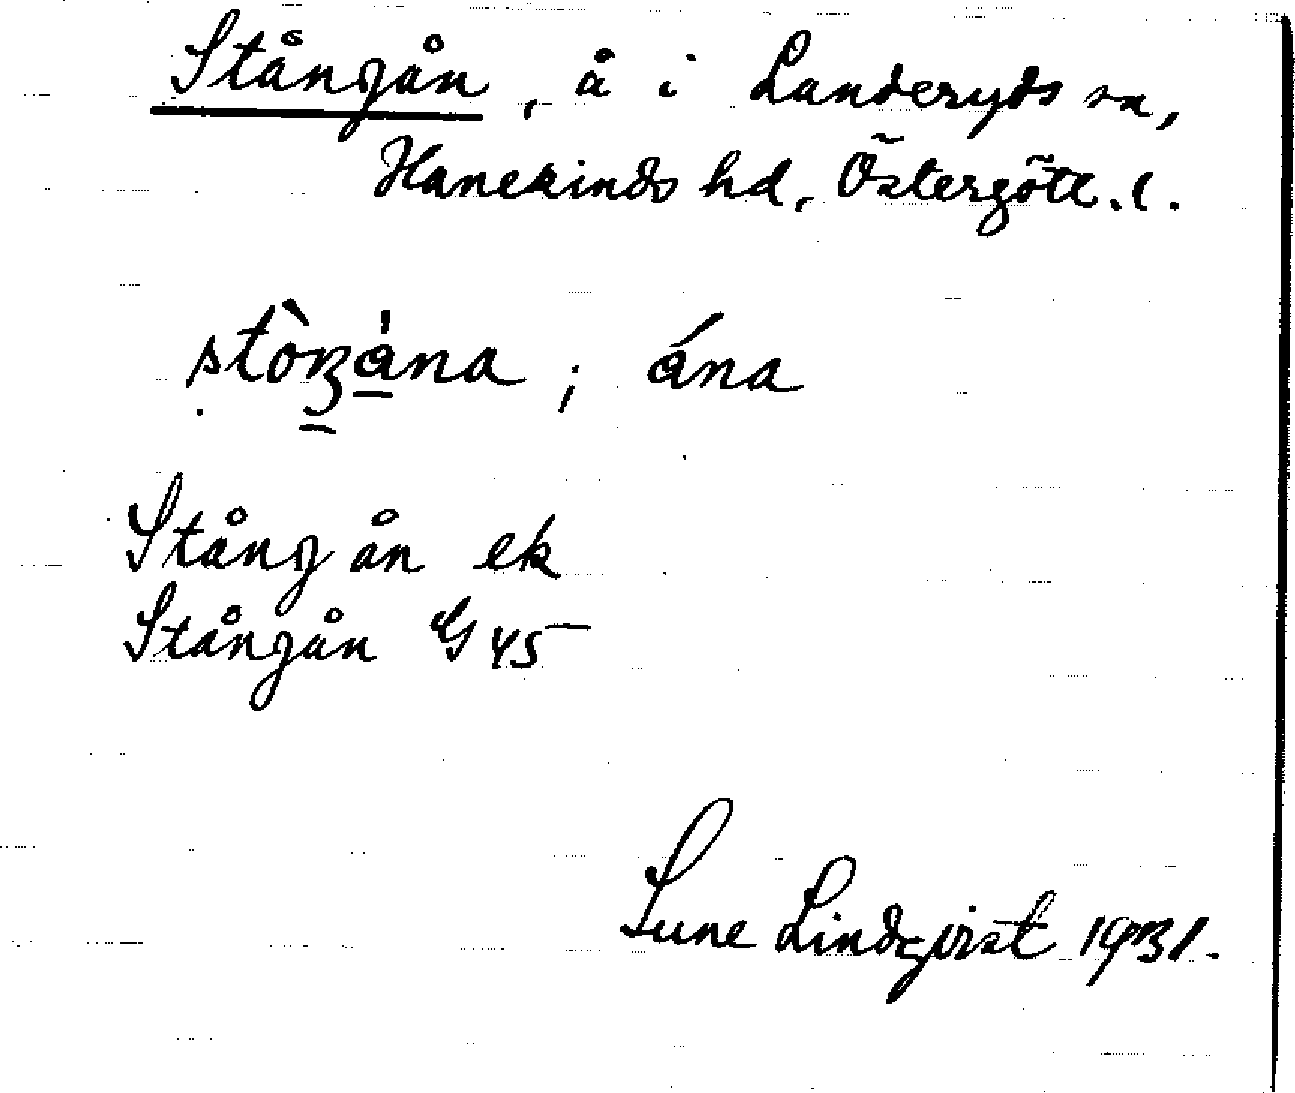 Stångån, å i Landeryds sn,
Hanekinds hd, Östergötl. l.
stòŋána; ána
Stång ån ek
Stångån G 45
Sune Lindqvist 1931.